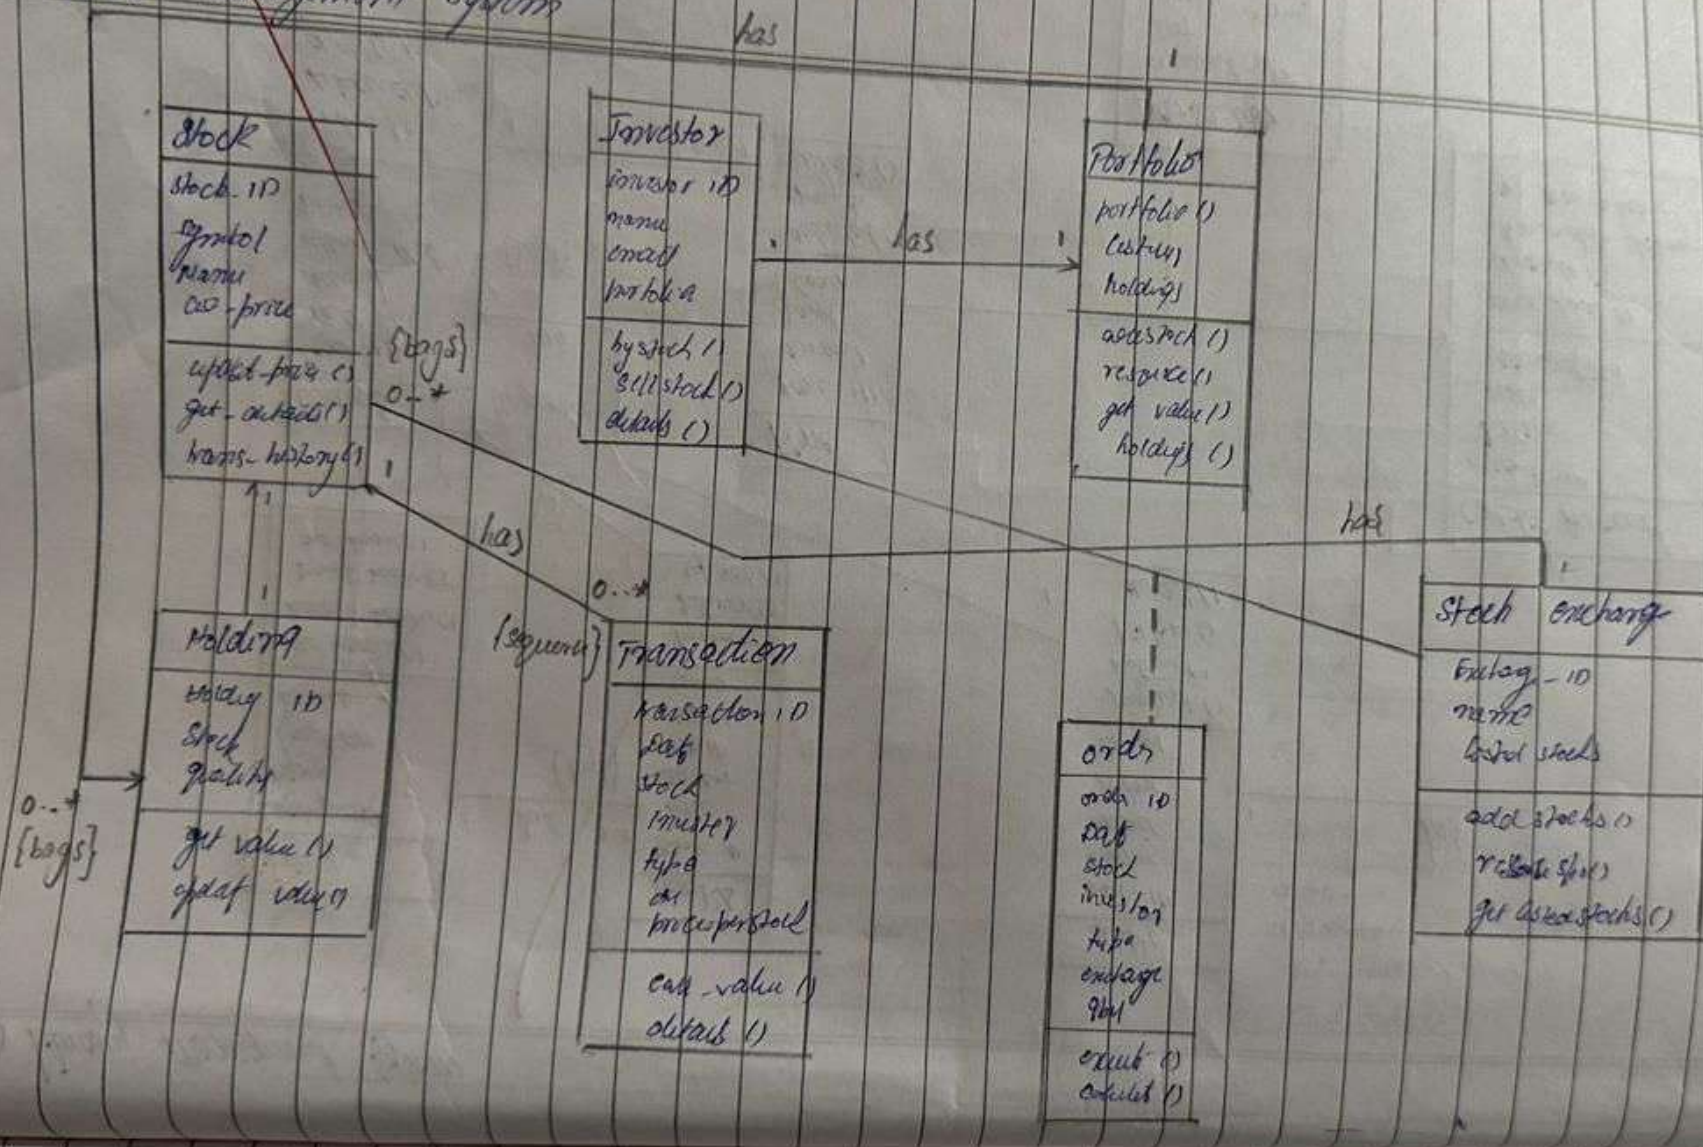 System
has
1
Stock
stock_ID
symbol
Name
price
update_price ()
get_details()
trans_history()
{bags}
0..*
1
Investor
investor ID
name
email
portfolia
bystock ()
Sellstock ()
details ()
has
1
Portfolio
portfolio ()
holdings
addstock ()
get value ()
holdings ()
has
0..*
{sequence}
1
1
has
1
Holding
Holding ID
Stock
get value ()
updat value()
0..*
{bags}
Transaction
transaction ID
Dat
stock
type
priceperstock
value ()
details ()
ordr
ordr ID
Dat
stock
investor
type
exchange
qty
execut ()
Stock exchang
ID
name
listed stocks
add stocks ()
get listedstocks ()